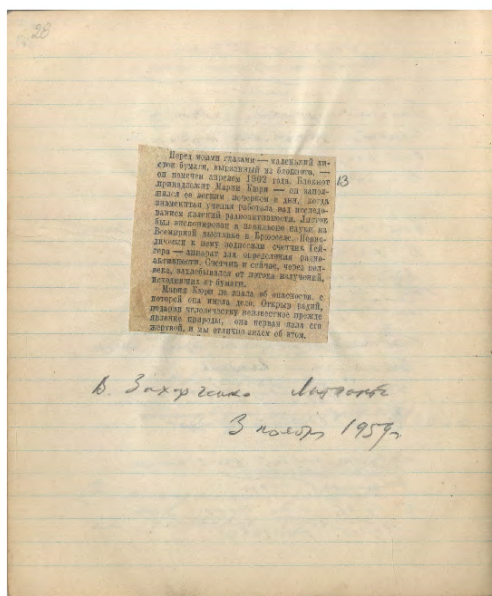 28
Перед моими глазами — маленький ли-
сток бумаги, вырванный из блокнота, —
он помечен апрелем 1902 года. Блокнот
принадлежит Марии Кюри — он запол-
нялся ее легким почерком в дни, когда
знаменитая ученая работала над исследо-
ванием явлений радиоактивности. Листок
был экспонирован в павильоне науки на
Всемирной выставке в Брюсселе. Перио-
дически к нему подносили счетчик Гей-
гера — аппарат для определения радио-
активности. Счетчик и сейчас, через пол-
века, захлебывался от потока излучений,
исходящих от бумаги.
Мария Кюри не знала об опасности, с
которой она имела дело. Открыв радий,
показав человечеству неизвестное прежде
явление природы, она первая пала его
жертвой, и мы отлично знаем об этом.
13
В. Захарченко
3 ноября 1959г.